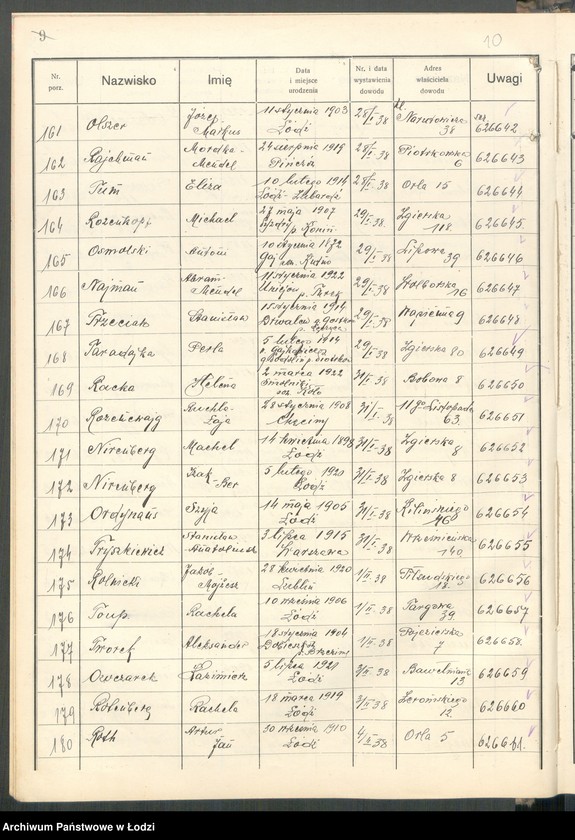 9
10
Nr. porz. Nazwisko Imię Data i miejsce urodzenia Nr. i data wystawienia dowodu Adres właściciela dowodu Uwagi
161 Olszer Józef Markus 11 stycznia 1903 Łódź 28/I 38 38 ser. 626642
162 Rajchman Mordka-Mendel 24 sierpnia 1919 Pińczów 28/I 38 Piotrkowska 6 626643
163 Tum Eliza 10 lutego 1914 Łódź 28/I 38 Orla 15 626644
164 Michael 27 maja 1907 p. Konin 29/I 38 Zgierska 118 626645
165 Osmolski Antoni 10 stycznia 1872 Kutno 29/I 38 Lipowa 39 626646
166 Najman Abram-Mendel 11 stycznia 1922 Uniejów p. Turek 29/I 38 Wolborska 16 626647
167 Trzeciak Stanisław 1 stycznia 1904 29/I 38 9 626648
168 Perla 5 lutego 1904 29/I 38 Zgierska 80 626649
169 Racka Helena 2 marca 1922 Koło 31/I 38 8 626650
170 Ruchla-Łaja 28 stycznia 1908 Chęciny 31/I 38 11go Listopada 63 626651
171 Nirenberg Machel 14 kwietnia 1898 Łódź 31/I 38 Zgierska 8 626652
172 Nirenberg Icek-Ber 5 lutego 1920 Łódź 31/I 38 Zgierska 8 626653
173 Ordynans Szyja 14 maja 1905 Łódź 31/I 38 Kilińskiego 46 626654
174 Tryszkiewicz Stanisław 3 lipca 1915 Warszawa 31/I 38 Wrześnieńska 626655
175 Rolnicki Jakób-Mojżesz 28 kwietnia 1920 Lublin 1/II 38 Piłsudskiego 626656
176 Toup Rachela 10 września 1906 Łódź 1/II 38 Targowa 39 626657
177 Aleksander 18 stycznia 1904 p. Brzeziny 1/II 38 7 626658
178 Owczarek Kazimierz 5 lipca 1921 Łódź 3/II 38 Bawełniana 13 626659
179 Rozenberg Rachela 18 marca 1919 Łódź 3/II 38 Żeromskiego 12 626660
180 Roth Artur Jan 30 września 1910 Łódź 4/II 38 Orla 5 626661
Archiwum Państwowe w Łodzi